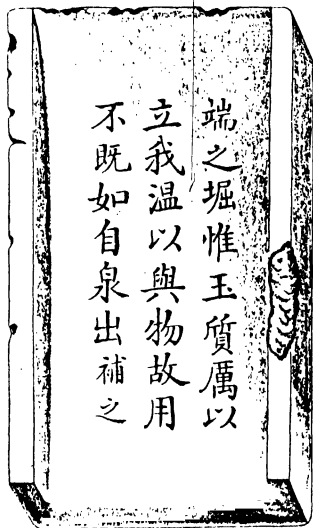 端之堀惟玉質厲以
立我温以與物故用
不既如自泉出補之